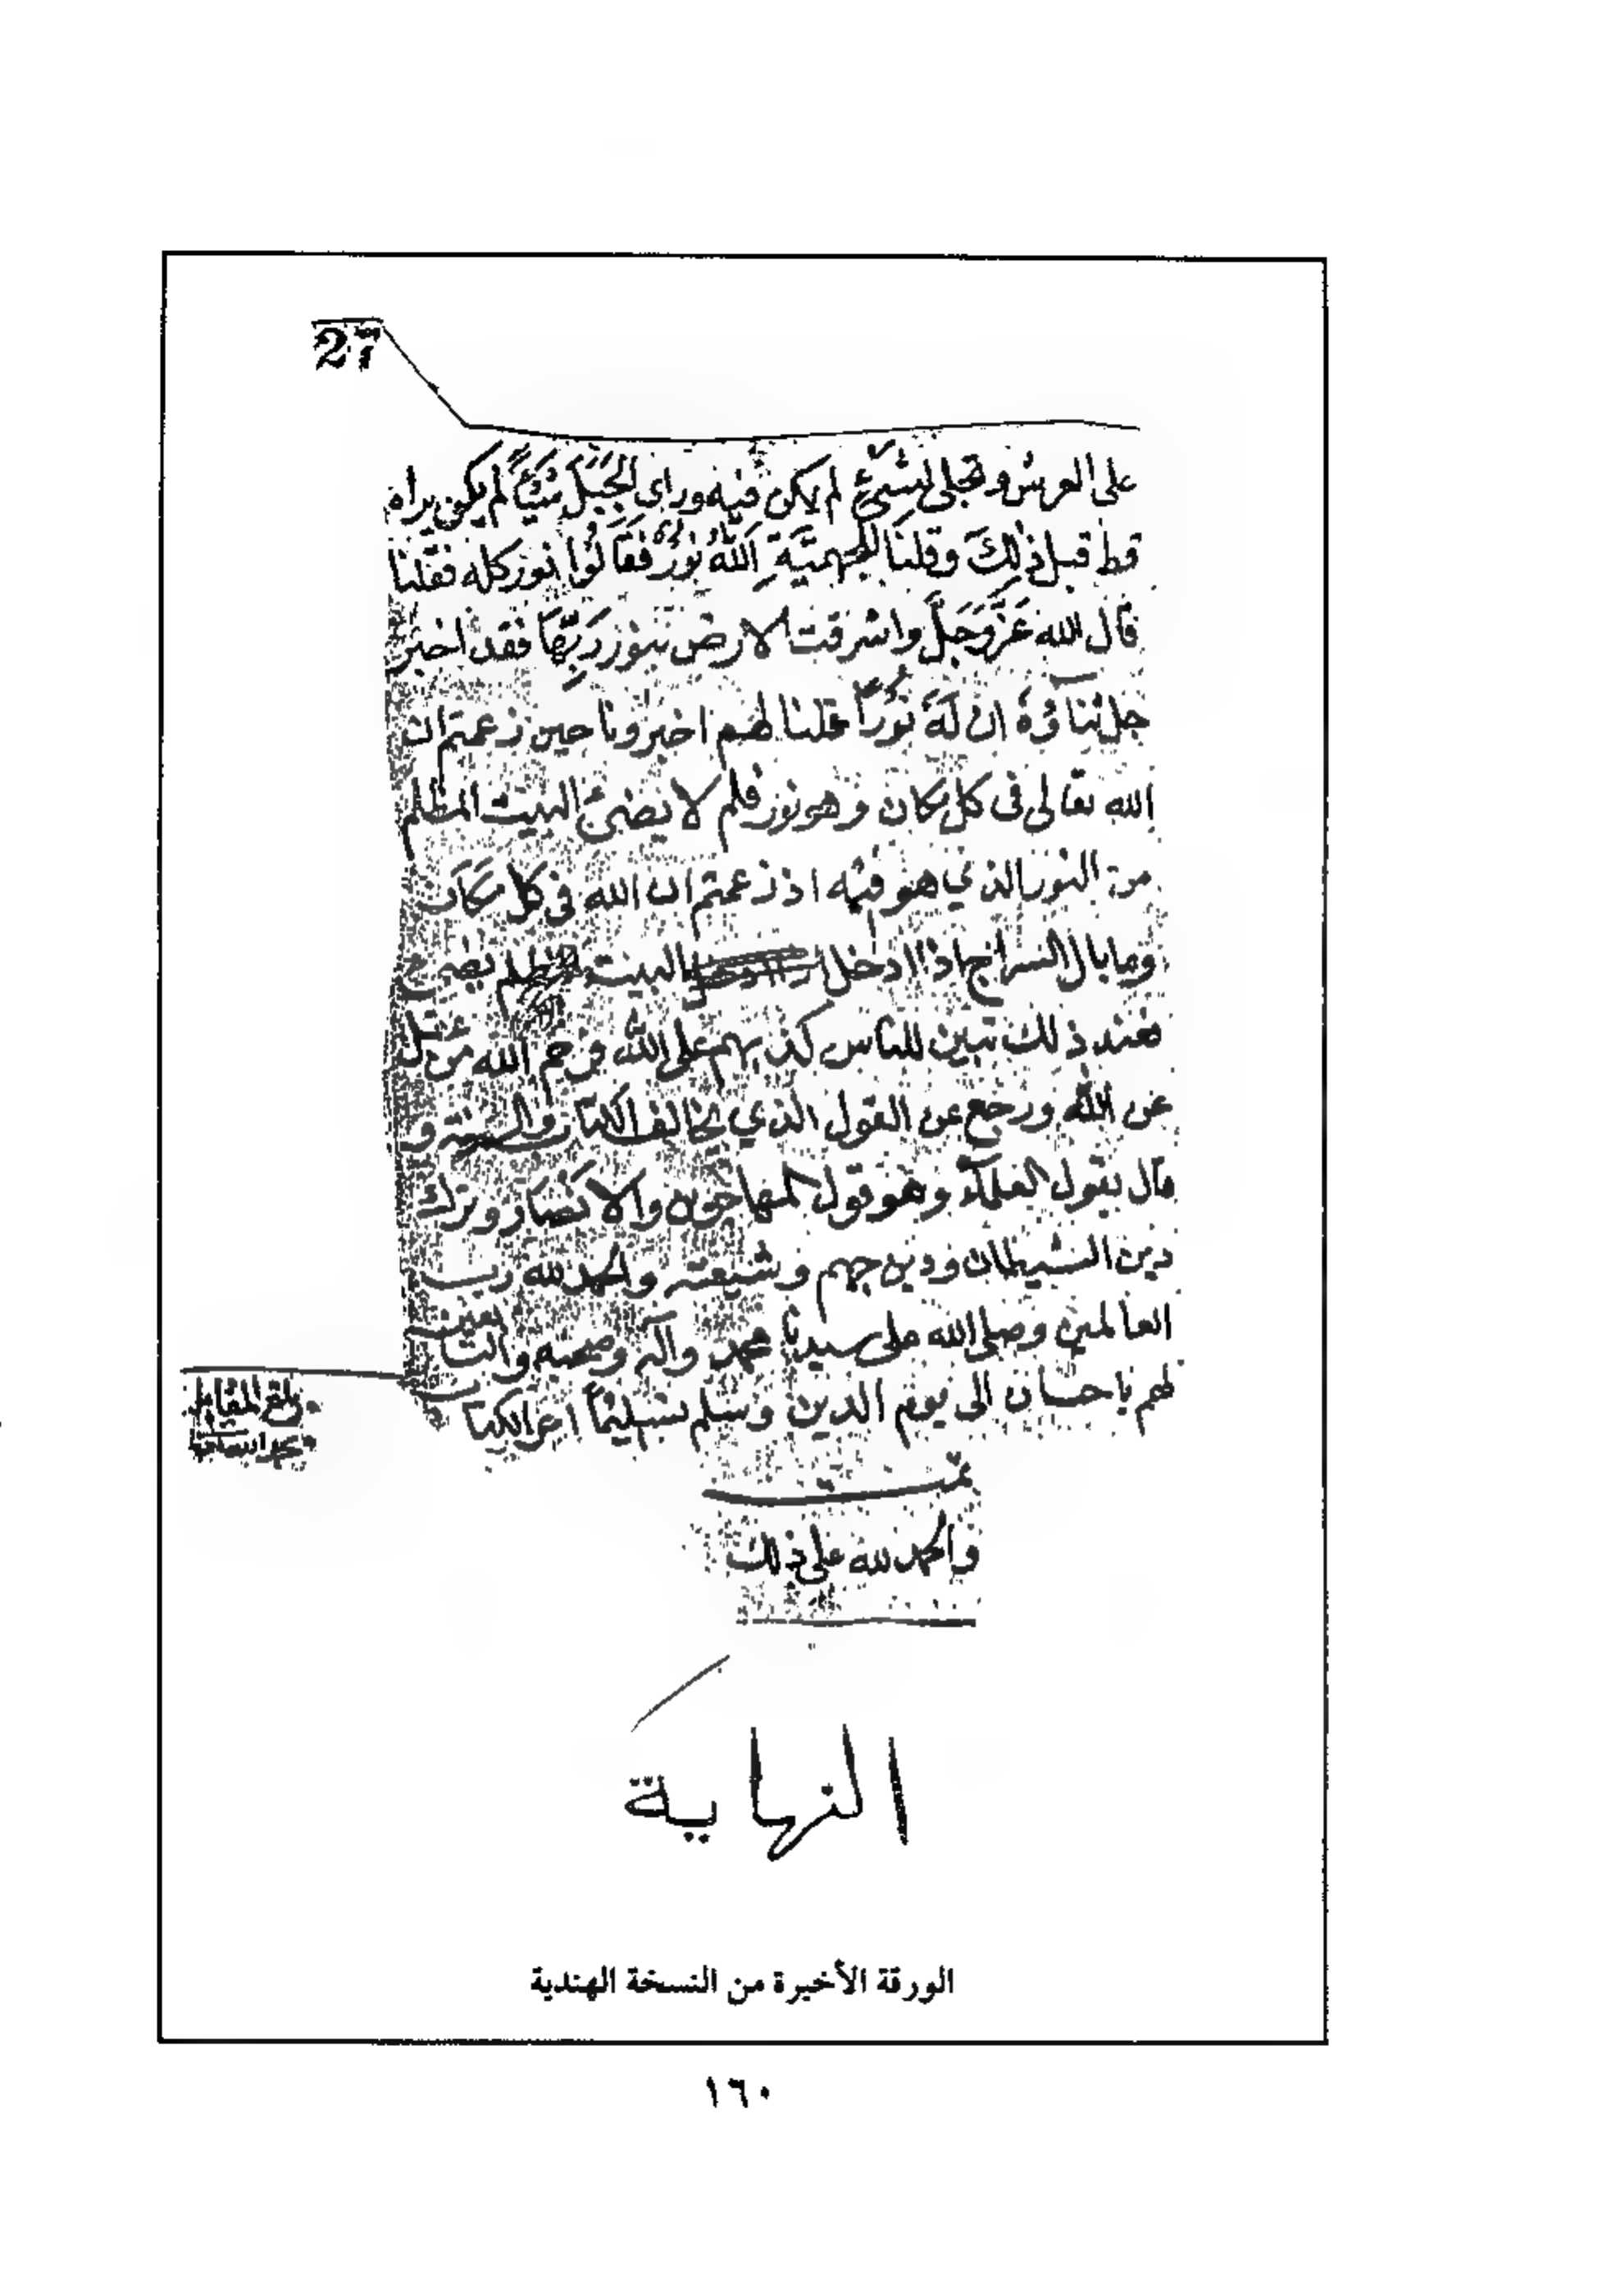 27
على العرش وتجلى لشيئ لم يكن فيه وراى الجَبَل شَيْئاً لم يكن يراه
قط قبل ذلِكَ وقلنَا للجهميَّةِ اَللّهُ نُوْرٌ فقَالُوا نور كله فقلنا
قال الله عَزَّوَجَلَّ واشرقت الارض بنور رَبِّهَا فقد اخبر
جل ثناؤهُ ان لَهُ نُوْراً قلنا لهم اخبرونا حين زعمتم ان
الله تعالى فى كل مكان وهو نور فلم لا يضئ البيت المظلم
من النور الذي هو فيه اذ زعمتم ان الله فى كل مكان
وما بال السراج اذا ادخل البيت المظلم يضيئ
فعند ذلك تبين للناس كذبهم على الله فرحم الله من عقل
عن الله ورجع عن القول الذي يخالف الكتاب والسنة و
قال بقول العلمآء وهو قول المهاجرين والانصار وترك
دين الشيطان ودين جهم وشيعته والحمد لله رب
العالمين وصلى الله على سيدنا محمد وآله وصحبه والتابعين
لهم باحسان الى يوم الدين وسلم تسليماً اخر الكتاب
بلغ المقابلة
تمت
والحمد لله على ذلك
النهاية
الورقة الأخيرة من النسخة الهندية
١٦٠